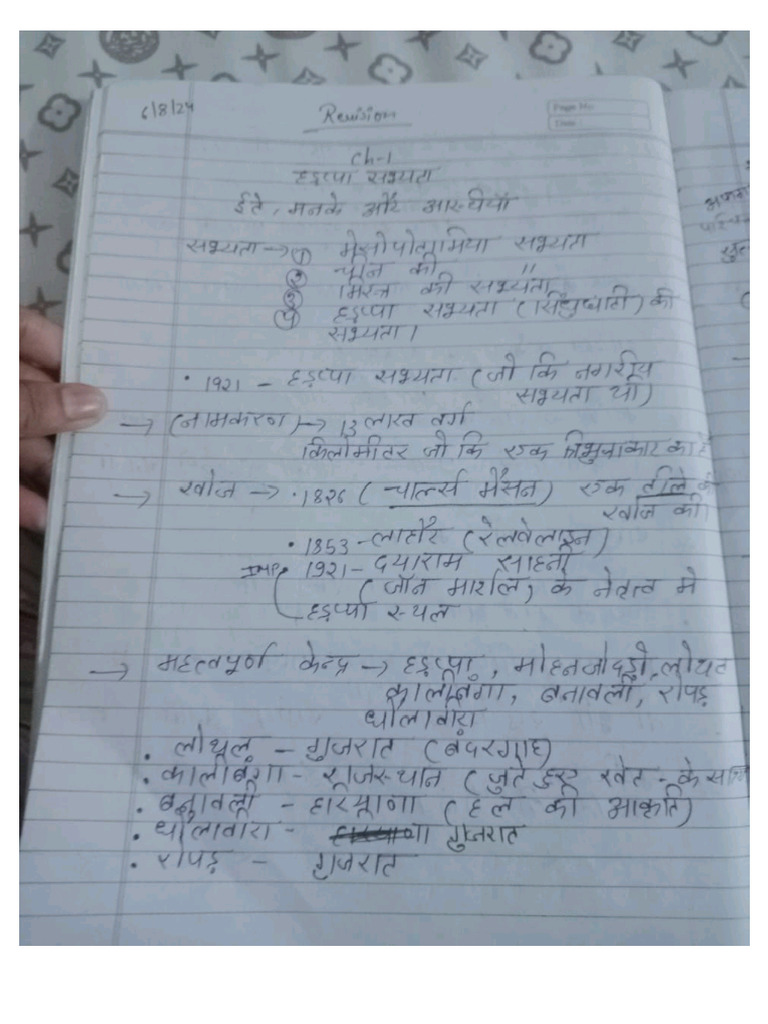 6/8/24 Revision
Page No:
Date:
Ch-1
हड़प्पा सभ्यता
ईंटे, मनके और अस्थियाँ
सभ्यता → ① मेसोपोटामिया सभ्यता
② चीन की "
③ मिस्त्र की सभ्यता
④ हड़प्पा सभ्यता (सिंधुघाटी) की
सभ्यता।
• 1921 - हड़प्पा सभ्यता (जो कि नगरीय
सभ्यता थी)
→ (नामकरण) → 13 लाख वर्ग
किलोमीटर जो कि एक त्रिभुजाकार का है
→ खोज → • 1826 (चार्ल्स मैसन) एक टीले की
खोज की।
• 1853 - लाहौर (रेलवेलाइन)
IMP. • 1921 - दयाराम साहनी
(जॉन मार्शल) के नेतृत्व मे
हड़प्पा स्थल
→ महत्वपूर्ण केन्द्र → हड़प्पा, मोहनजोदड़ो, लोथल
कालीबंगा, बनावली, रोपड़
धोलावीरा
• लोथल - गुजरात (बंदरगाह)
• कालीबंगा - राजस्थान (जुते हुए खेत - के साक्ष
• बनावली - हरियाणा (हल की आकृति)
• धोलावीरा - गुजरात
• रोपड़ - गुजरात